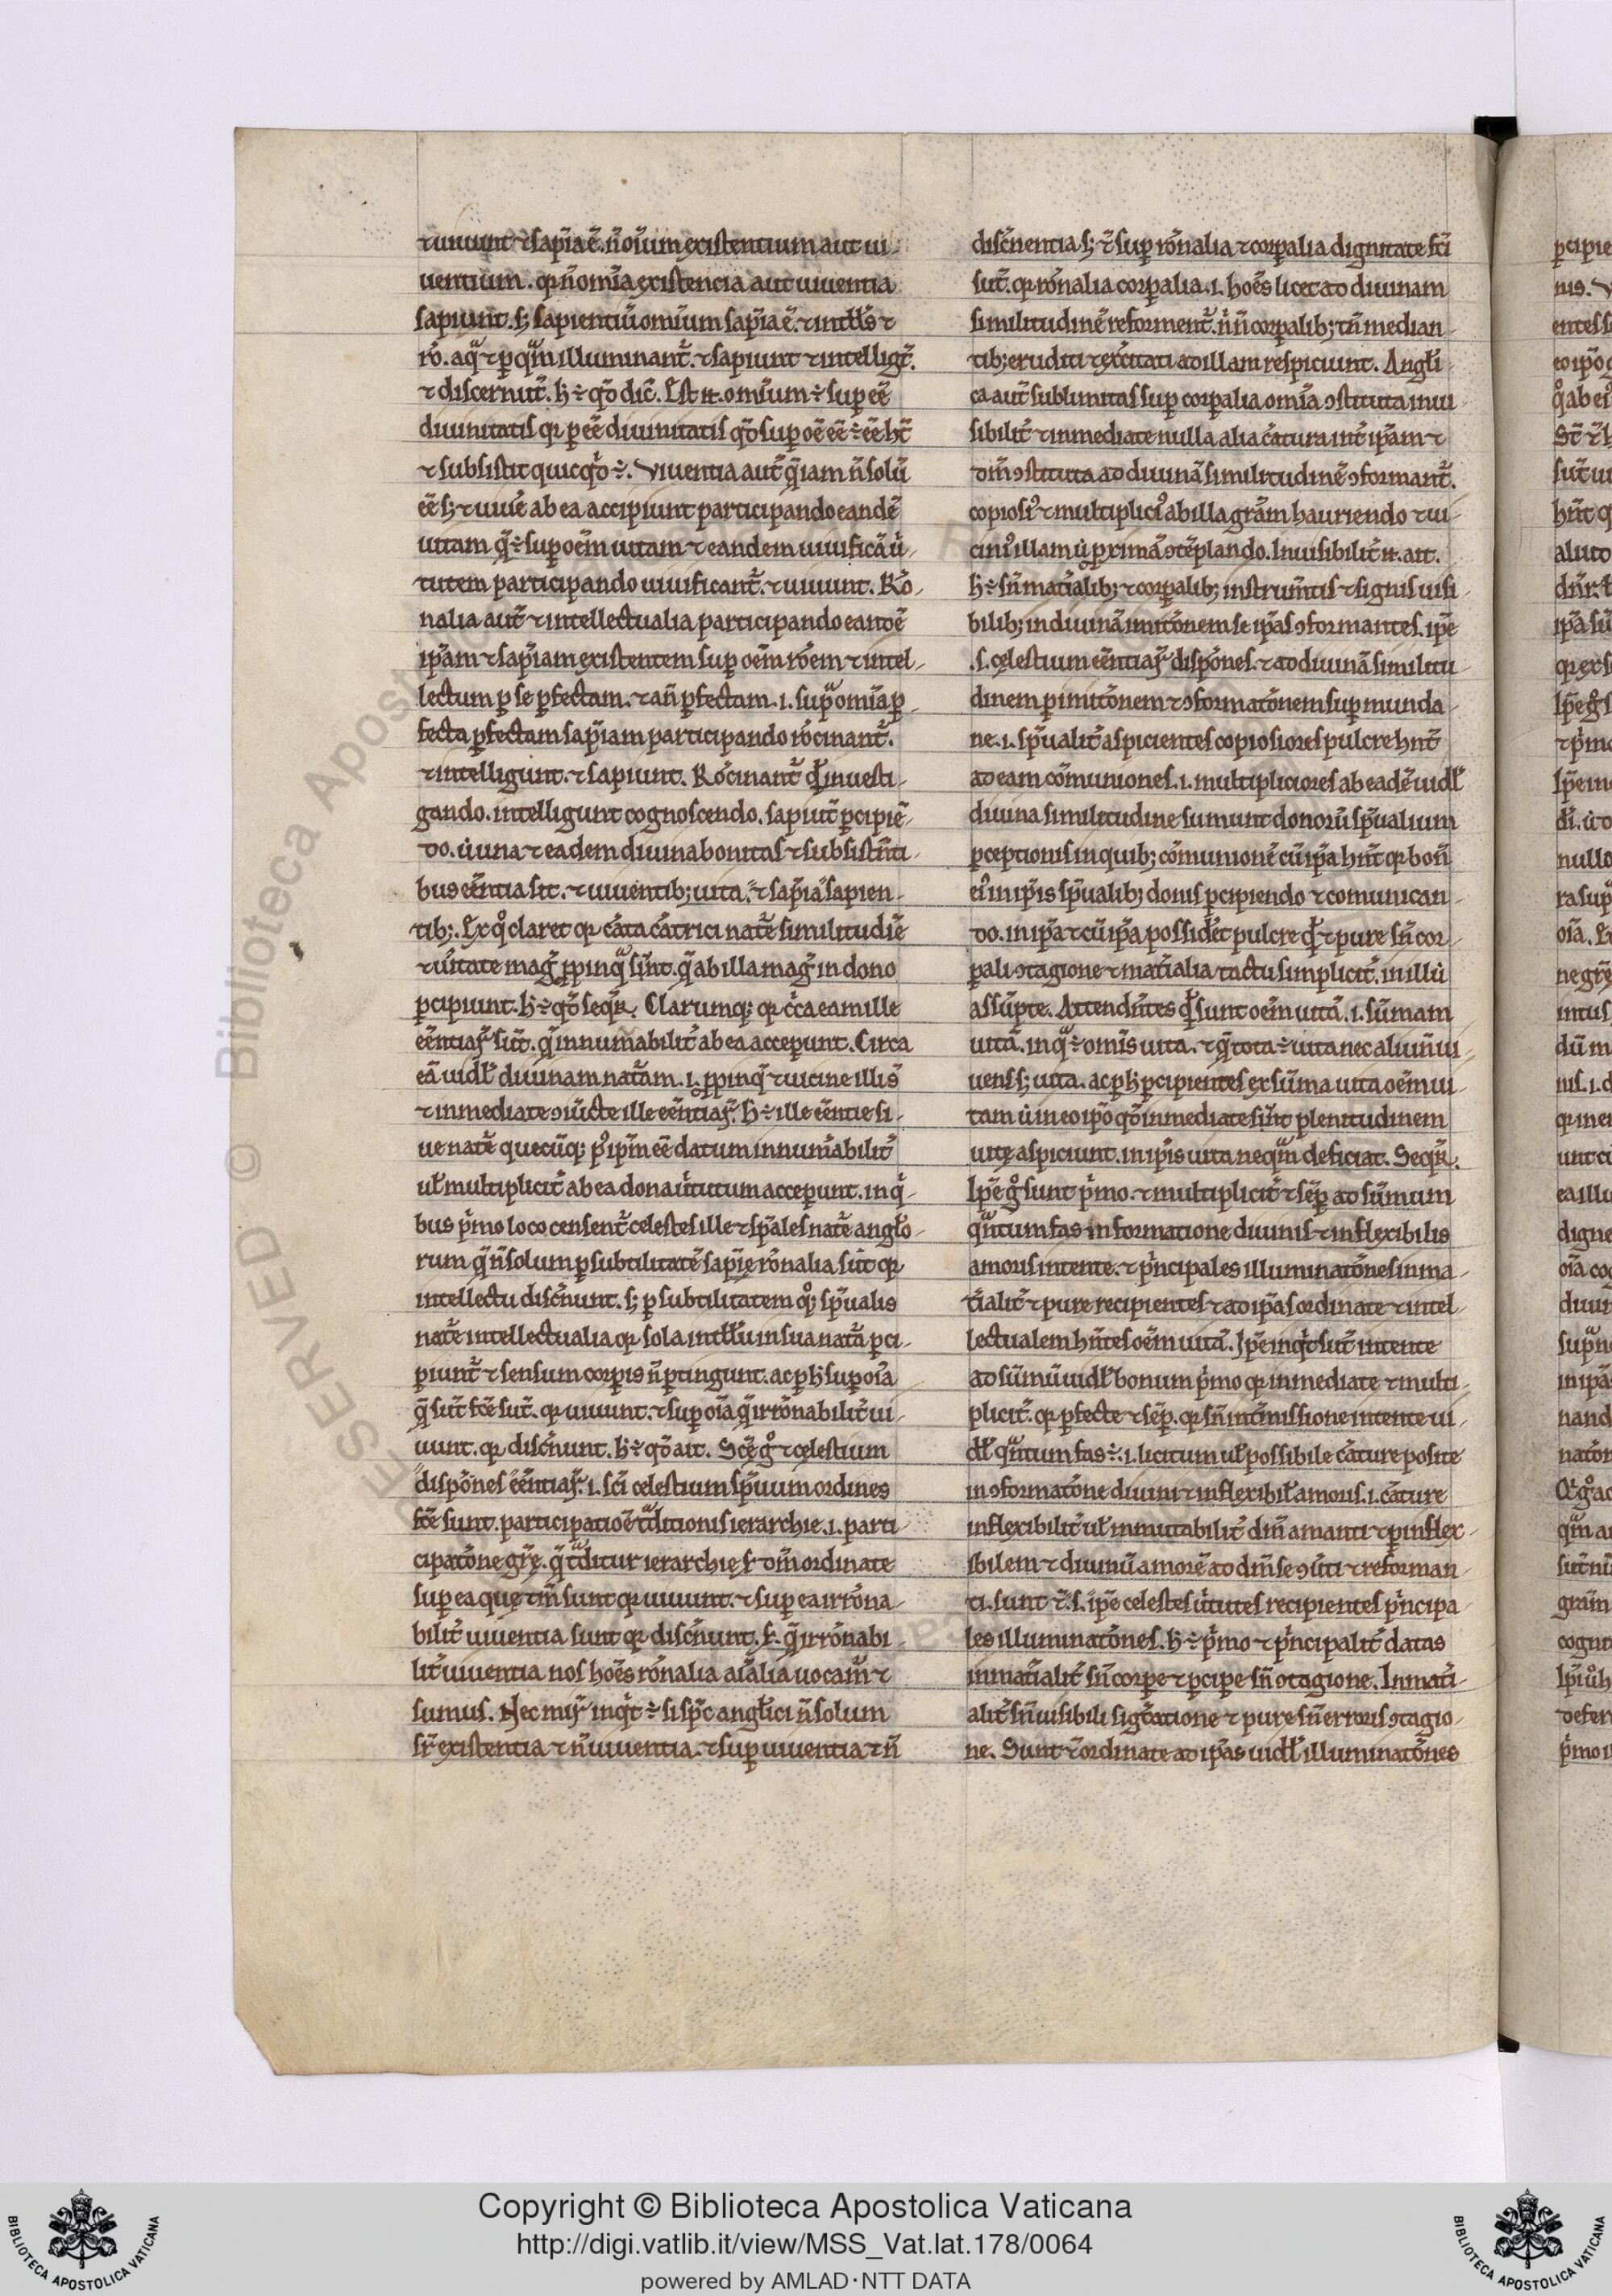 ⁊ uiuunt ⁊ sap̄ia ē. n̄ oīum existentium aut ui-
uentium. qr n̄ om̄ia existencia aut uiuentia
sapiunt. s; sapientiū omīum sap̄ia ē. ⁊ intłłs ⁊
rō. a qͣ ⁊ ꝑ qͣm illuminant᷑. ⁊ sapiunt ⁊ intelligt̄.
⁊ discernūt. h ÷ qō dic̄. Est n. omīum ÷ suꝑ eē
diuinitatis qr ꝑ eē diuinitatis qō suꝑ oē eē ÷ eē ht̄
⁊ subsistit quicqͦ ÷. Viuentia aut̄ q̄ iam n̄ solū
eē s; ⁊ uiuē ab ea accipiunt participando eandē
uitam q̄ ÷ suꝑ oēm uitam ⁊ eandem uiuificā uͥ-
tutem participando uiuificant᷑. ⁊ uiuunt. Rō-
nalia aut̄ ⁊ intellectualia participando eandē
ip̄am ⁊ sap̄iam existentem suꝑ oēm rōem ⁊ intel-
lectum ꝑ se ꝑfectam. ⁊ an̄ ꝑfectam. i. supͣ omīa ꝑ-
fecta ꝑfectam sap̄iam participando rōcinant᷑.
⁊ intelligunt. ⁊ sapiunt. Rōcinant᷑ inuesti-
gando. intelligunt cognoscendo. sapiūt ꝑcipiē-
do. uͥ una ⁊ eadem diuina bonitas ⁊ subsistn̄ti-
bus eēntia sit. ⁊ uiuentib; uita. ⁊ sap̄ia sapien-
tib;. Ex qͦ claret qr cāta cātrici natē similitudiē
⁊ uītate mag᷑ ꝓpinqͣ sn̄t. q̄ ab illa mag᷑ in dono
ꝑcipiunt. h ÷ qō seqr̄. Clarumq; qr cͥca ea mille
eēntiaꝝ sūt. q̄ innum̄abilit᷑ ab ea acceꝑunt. Circa
eā uidł diuinam natām. i. ꝓpinq̄ ⁊ uicine illis
⁊ inmediate ꝯiūcte ille eēntiaꝝ. h ÷ ille eēntie si-
ue natē quecūq; pͥ ip̄m eē datum innum̄abilit᷑
uł multiplicit᷑ ab ea dona uͥtutum acceꝑunt. in qͥ-
bus pͥmo loco censent᷑ celestes ille ⁊ sp̄ales natē angło-
rum q̄ n̄ solum ꝑ subtilitatē sap̄ię rōnalia sūt qr
intellectu disc̄nunt. s; ꝑ subtilitatem qͦq; sp̄ualis
natē intellectualia qr sola intłłu in sua natā ꝑci-
piunt᷑ ⁊ sensum corꝑis n̄ ꝑtingunt. ac ꝑ h suꝑ oīa
q̄ sūt fcē sūt. qr uiuunt. ⁊ suꝑ oīa q̄ irrōnabilit᷑ ui-
uunt. qr disc̄nunt. h ÷ qō ait. Scē gͦ ⁊ celestium
dispōnes eēntiaꝝ. i. sci celestium sp̄uum ordines
fcē sunt. participatiōē tͣditionis ierarchie. i. parti-
cipatōne gr̄ę. q̄ tͣditur ierarchie ordinate
suꝑ ea quę tm̄ sunt qr uiuunt. ⁊ suꝑ ea irrōna-
bilit᷑ uiuentia sunt qr disc̄nunt. q̄ irrōnabi-
lit᷑ uiuentia nos hoēs rōnalia aīalia uocam᷑ ⁊
sumus. Nec miꝝ inqͥt ÷ si sp̄c angłici n̄ solum
sr̄ existentia ⁊ n̄ uiuentia. ⁊ suꝑ uiuentia ⁊ n̄
disc̄nentia s; ⁊ suꝑ rōnalia ⁊ corꝑalia dignitate fc̄i
sūt. qr rōnalia corꝑalia. i. hoēs licet ad diuinam
similitudinē reforment᷑. n̄ n̄ corꝑalib; tn̄ median-
tib; eruditi ⁊ excitati ad illam respiciunt. Angłi-
ca aut̄ sublimitas suꝑ corꝑalia omīa ꝯstituta inui-
sibilit᷑ ⁊ inmediate nulla alia cātura int᷑ ip̄am ⁊
dm̄ ꝯstituta ad diuinā similitudinē ꝯformant᷑.
copiosiꝰ ⁊ multipliciꝰ ab illa grām hauriendo ⁊ ui-
ciniꝰ illam uͥ primā ꝯtēplando. Inuisibilit᷑ n. ait.
h ÷ sn̄ mat̄ialib; ⁊ corꝑalib; instrum̄tis ⁊ signis uisi-
bilib; in diuinā imitōnem se ip̄as ꝯformantes. ip̄e
.s. cęlestium eēntiaꝝ dispōnes. ⁊ ad diuinā similitu-
dinem ꝑ imitōnem ⁊ ꝯformatōnem suꝑmunda-
ne. i. sp̄ualit᷑ aspicientes copiosiores pulcre hn̄t
ad eam cōmuniones. i. multipliciores ab eadē uidł
diuina similitudine sumunt donorū sp̄ualium
ꝑceptionis in quib; cōmunionē cū ip̄a hn̄t qr bon̄
eiꝰ in ip̄is sp̄ualib; donis ꝑcipiendo ⁊ comunican-
do. in ip̄a ⁊ cū ip̄a possidēt pulcre ⁊ pure sn̄ cor-
ꝑali ꝯtagione ⁊ mat̄ialia tactu simplicit᷑. in illū
assūpte. Attendn̄tes sunt oēm uitā. i. sūmam
uitā. in qͣ ÷ omīs uita. ⁊ q̄ tota ÷ uita nec aliun̄ ui-
uens s; uita. ac ꝑ h ꝑcipientes ex sūma uita oēm ui-
tam uͥ in eo ip̄o qō inmediate sn̄t plenitudinem
uitę aspiciunt. in ip̄is uita neqͣm deficiat. Seqr̄.
Ip̄e gͦ sunt pͥmo. ⁊ multiplicit᷑ ⁊ sēꝑ ad sūmum
qͣntum fas in formatione diuinis ⁊ inflexibilis
amoris intente. ⁊ pͥncipales illuminatōnes inma-
t̄ialit᷑ ⁊ pure recipientes ⁊ ad ip̄as ordinate ⁊ intel-
lectualem hn̄tes oēm uitā. Ip̄e inqͥt sūt intente
ad sūmū uidł bonum pͥmo qr inmediate ⁊ multi-
plicit᷑. qr ꝑfecte ⁊ sēꝑ. qr sn̄ int᷑missione intente ui-
dł qͣntum fas ÷. i. licitum uł possibile cāture posite
in ꝯformatōne diuini ⁊ inflexibił amoris. i. cāture
inflexibilit᷑ uł inmutabilit᷑ dm̄ amanti ⁊ ꝑ inflex-
ibilem ⁊ diuinū amorē ad dm̄ se ꝯuͥti ⁊ reforman-
ti. sunt ⁊. s. ip̄e celestes uͥtutes recipientes pͥncipa-
les illuminatōnes. h ÷ pͥmo ⁊ pͥncipalit᷑ datas
inmat̄ialit᷑ sn̄ corꝑe ⁊ ꝑcipe sn̄ ꝯtagione. Inmat̄i-
alit᷑ sn̄ uisibili sigͥficatione ⁊ pure sn̄ erroris ꝯtagio-
ne. Sunt ⁊ ordinate ad ip̄as uidł illuminatōnes
Copyright © Biblioteca Apostolica Vaticana
http://digi.vatlib.it/view/MSS_Vat.lat.178/0064
powered by AMLAD·NTT DATA